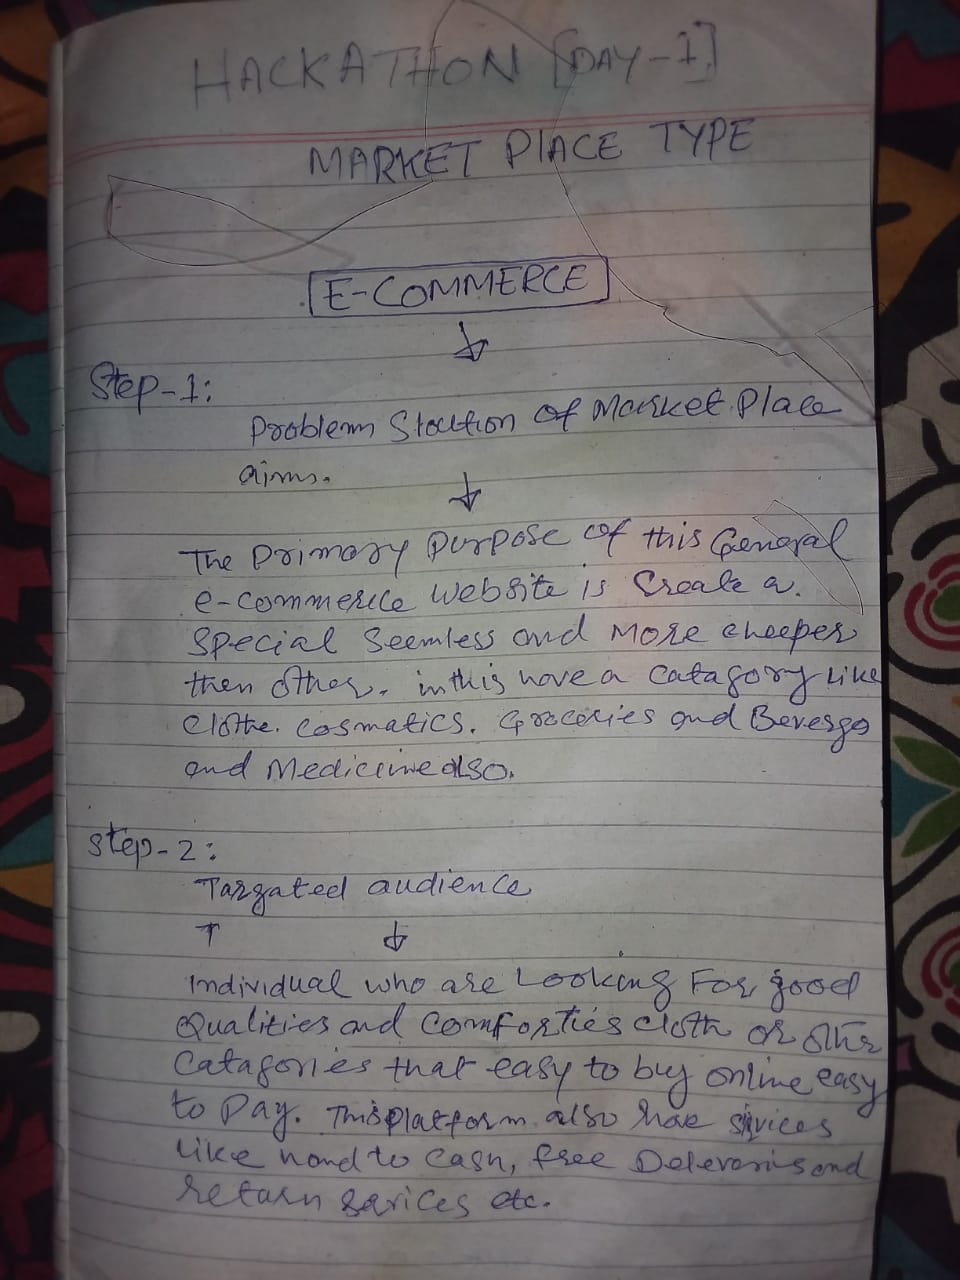 HACKATHON [DAY-1]
MARKET PlACE TYPE
E-COMMERCE
Step-1:
Problem Stection of Market Place
aims.
The Primary Purpose of this General
e-commerce website is Create a.
Special Seemless and More cheeper
then other. in this have a catagory like
Clothe. Cosmatics. Groceries and Beverge
and Medicine also.
Step-2:
Targated audience
Individual who are Looking For good
Qualities and Comforties cloth or other
Catagories that easy to buy online, easy
to Pay. This Platform also have sivices
like hand to Cash, free Deleveris and
return Sarices etc.